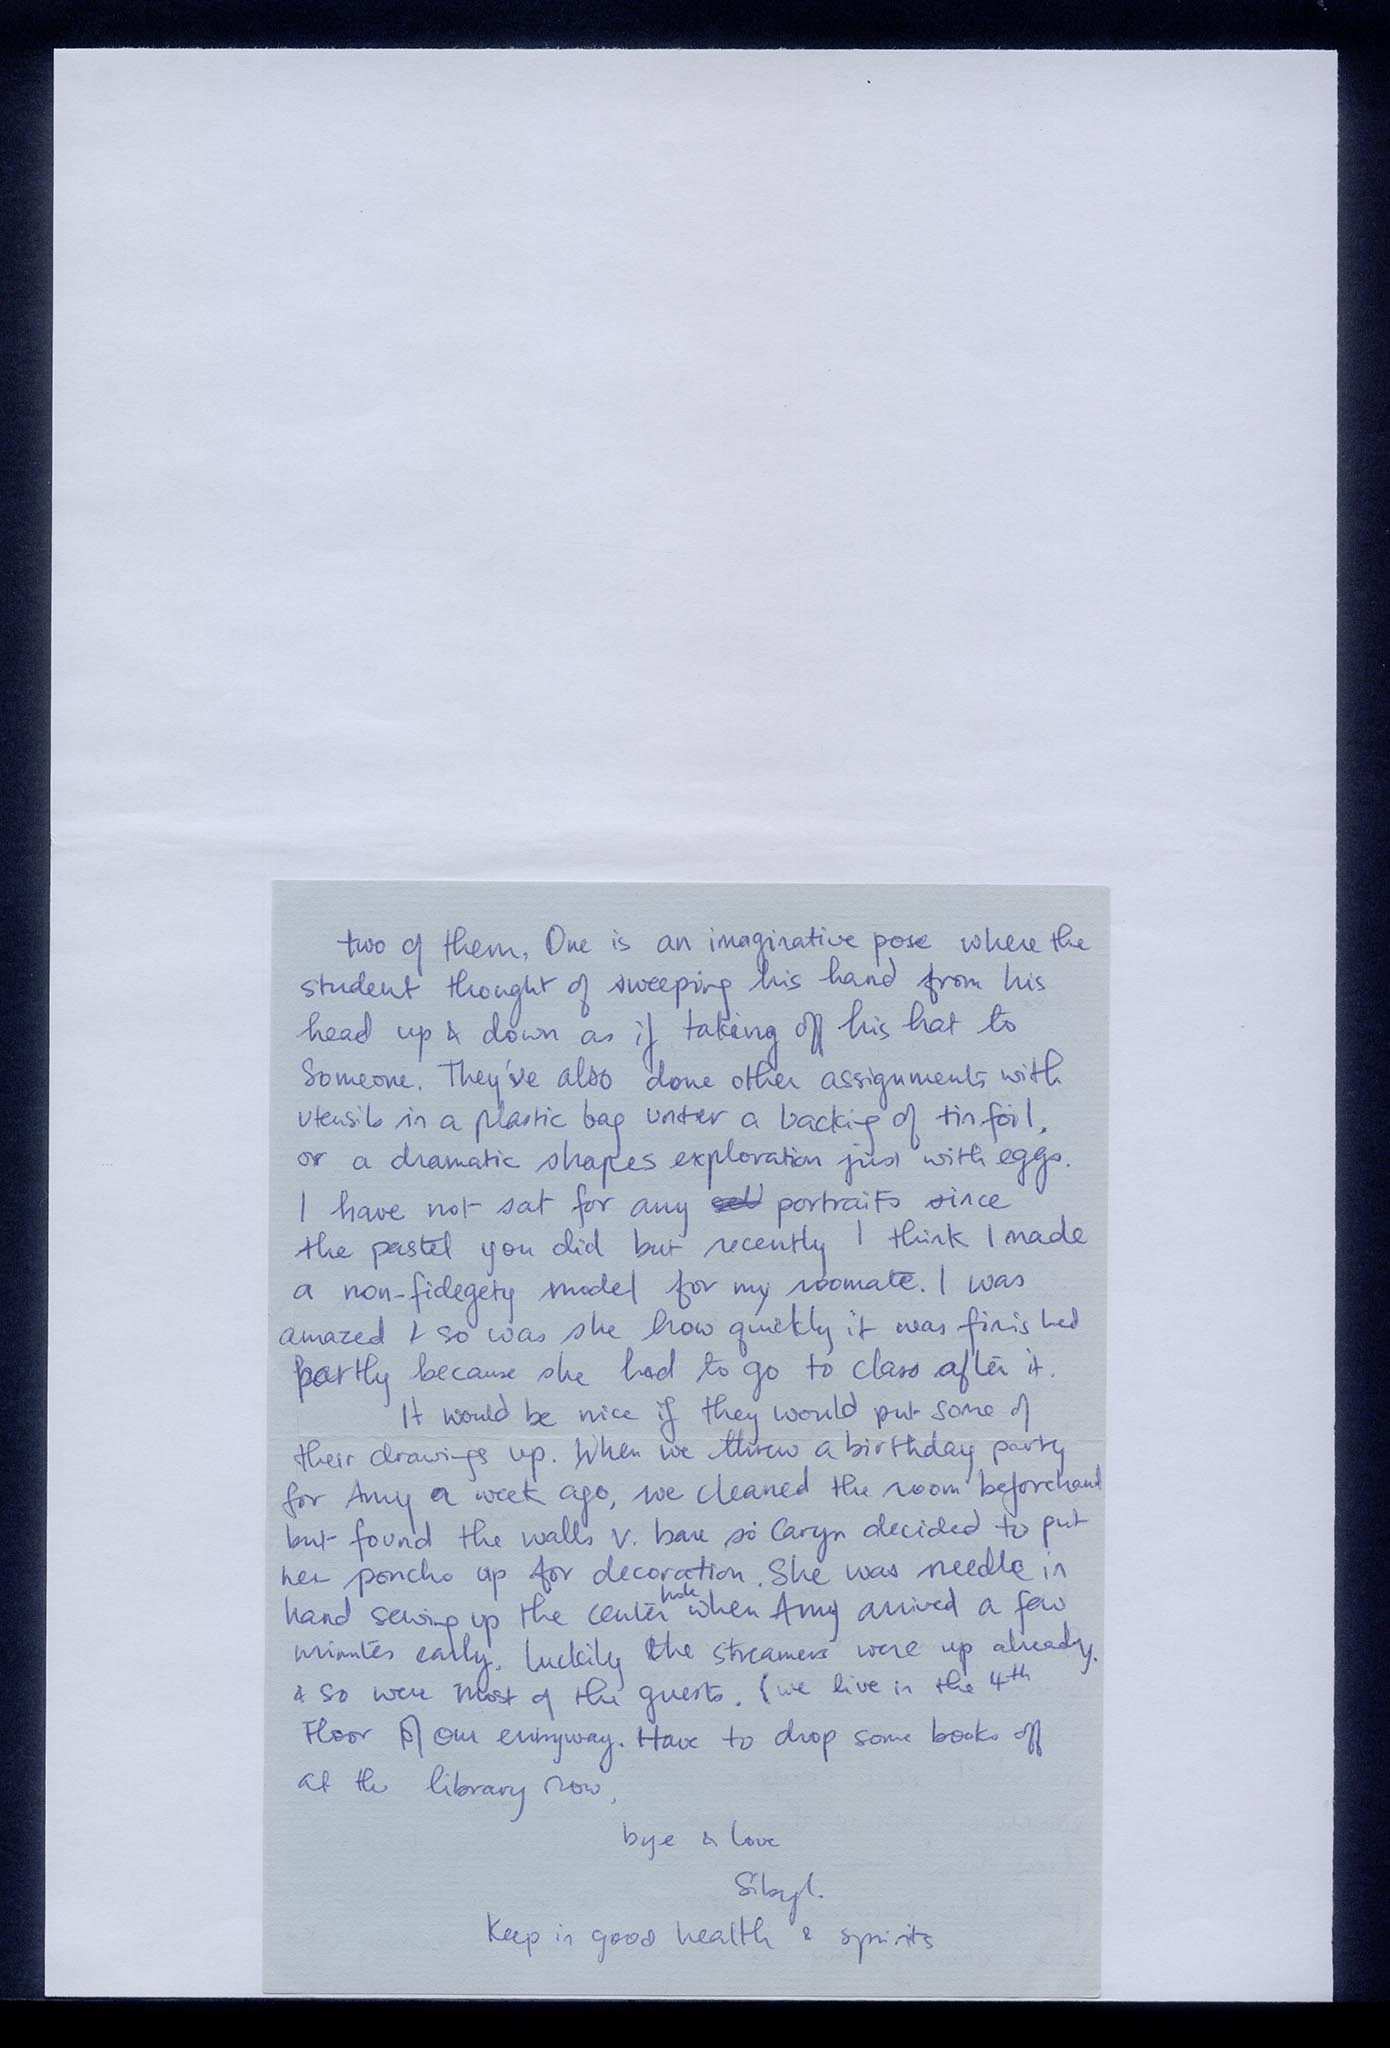 two of them, One is an imaginative pose where the
student thought of sweeping his hand from his
head up & down as if taking off his hat to
someone. They've also done other assignments with
utensils in a plastic bag under a backing of tin foil,
or a dramatic shapes exploration just with eggs.
I have not sat for any portraits since
the pastel you did but recently I think I made
a non-fidegety model for my roomate. I was
amazed & so was she how quickly it was finished
partly because she had to go to class after it.
It would be nice if they would put some of
their drawings up. When we threw a birthday party
for Amy a week ago, we cleaned the room beforehand
but found the walls v. bare so Caryn decided to put
her poncho up for decoration. She was needle in
hand sewing up the center hole when Amy arrived a few
minutes early. Luckily the streamers were up already.
& so were most of the guests. (we live in the 4th
Floor of our entryway. Have to drop some books off
at the library now,
bye & love
Sibyl.
Keep in good health & spirits